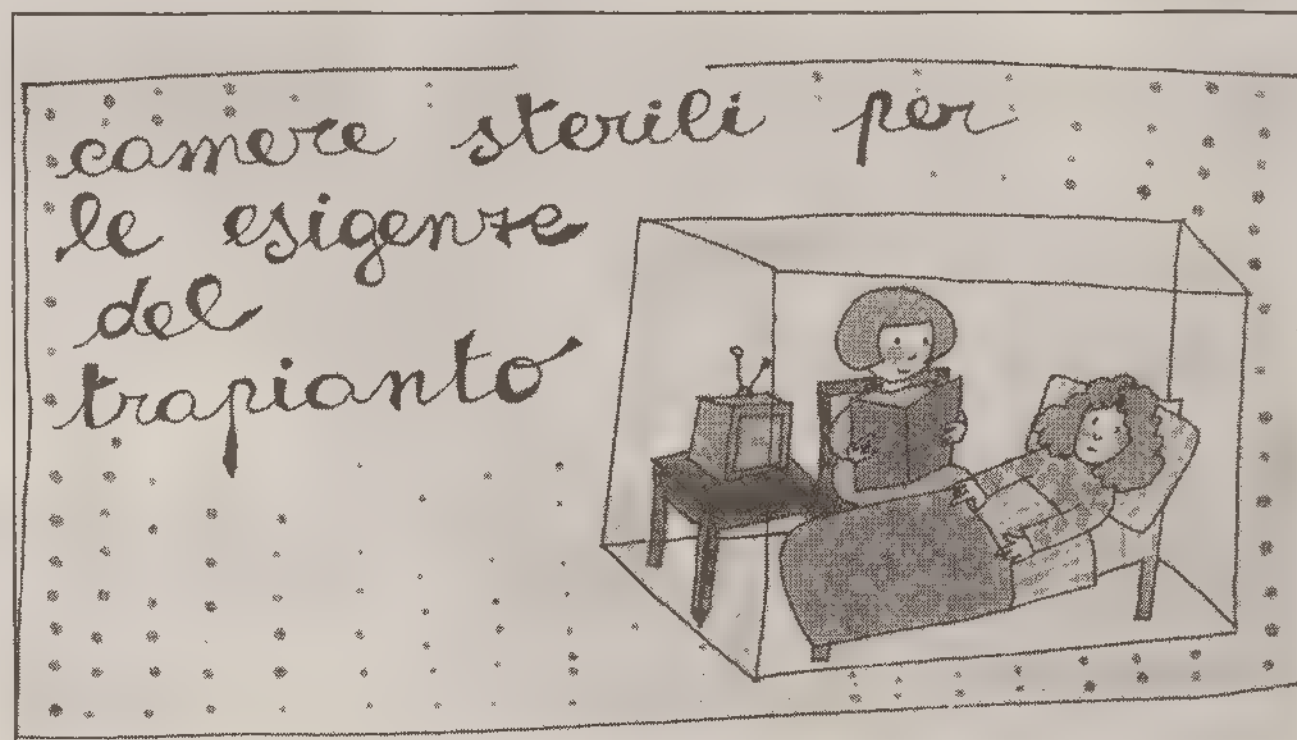 camere sterili per
le esigenze
del
trapianto